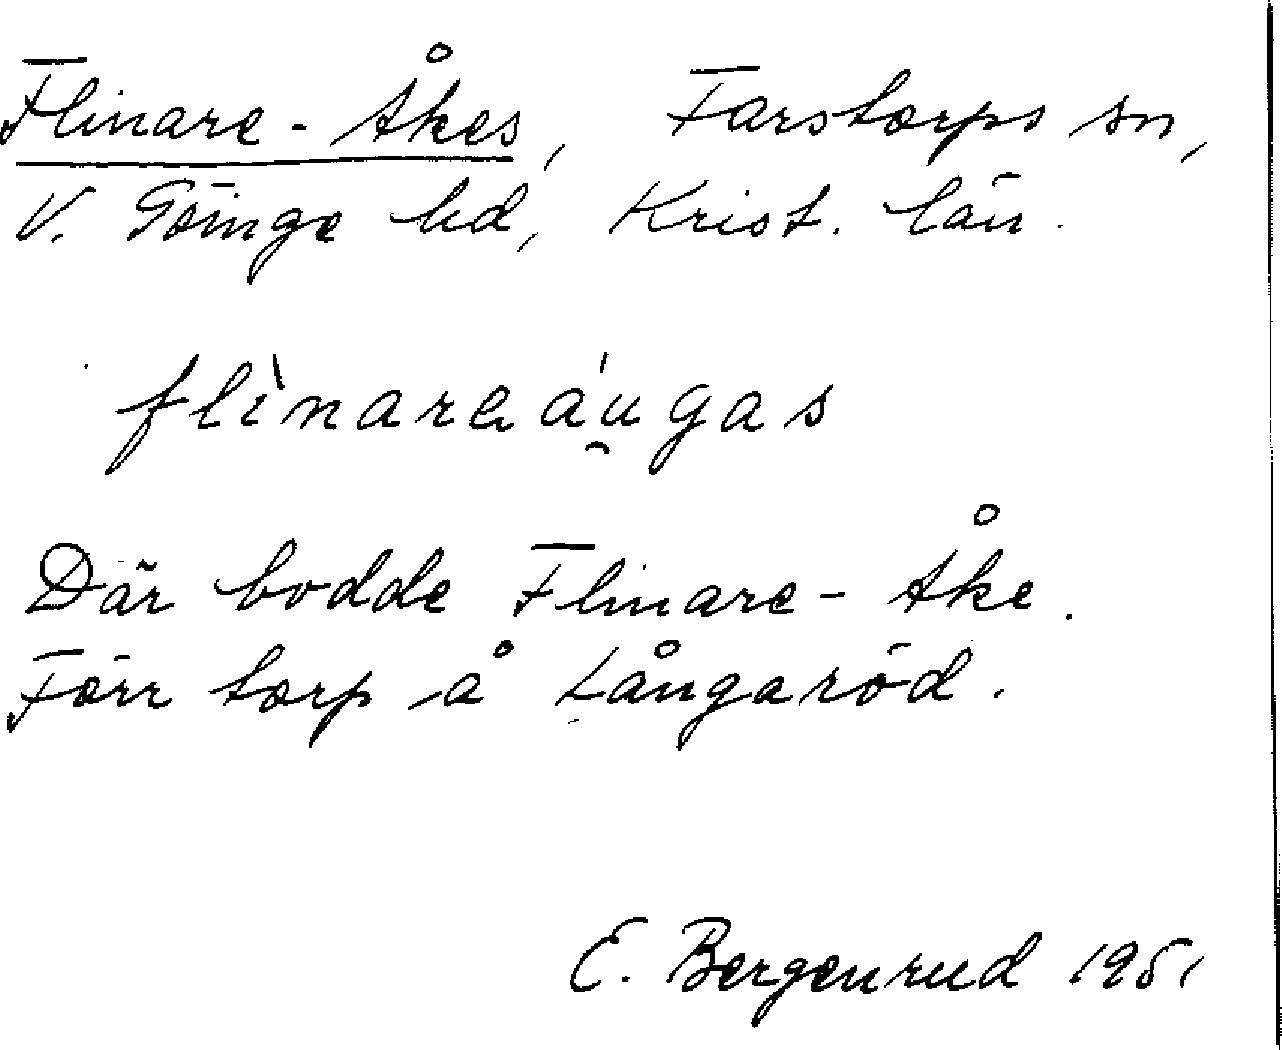 Flinare-Åkes, Farstorps sn,
V. Göinge hd, Krist. län.
flìnareáu̯gas
Där bodde Flinare-Åke.
Förr torp å Långaröd.
E. Bergenrud 1951